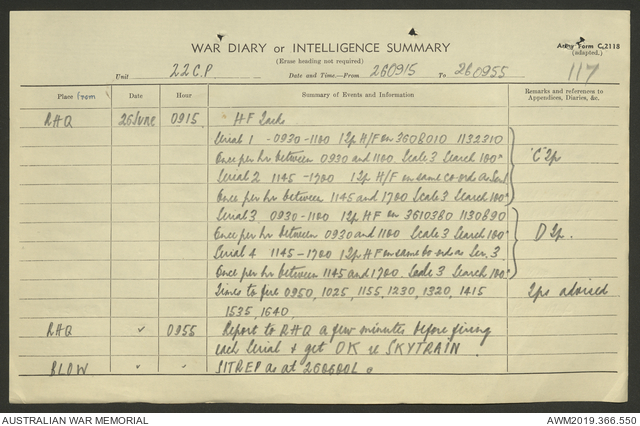 WAR DIARY or INTELLIGENCE SUMMARY
(Erase heading not required)
Army Form C.2118
(adapted.)
117
Unit 22 C.P Date and Time.—From 260915 To 260955
Place from Date Hour Summary of Events and Information Remarks and references to Appendices, Diaries, &c.
RHQ 26 June 0915 HF Tasks
Serial 1 - 0930-1100 1 Tp H/F on 3608010 1132310
Once per hr between 0930 and 1100 Scale 3 Search 100°
"C" Tp
Serial 2 1145-1700 1 Tp H/F on same co-ord as Ser 1
Once per hr between 1145 and 1700 Scale 3 Search 100°
Serial 3 0930-1100 1 Tp HF on 3610380 1130890
Once per hr between 0930 and 1100 Scale 3 Search 100°
D Tp.
Serial 4 1145-1700 1 Tp HF on same co-ords as Ser. 3
Once per hr between 1145 and 1700 Scale 3 Search 100°
Times to fire 0950, 1025, 1155, 1230, 1320, 1415 Tps advised
1535, 1640.
RHQ " 0955 Report to RHQ a few minutes before firing
each Serial + get OK re SKYTRAIN.
" SITREP as at
AUSTRALIAN WAR MEMORIAL AWM2019.366.550